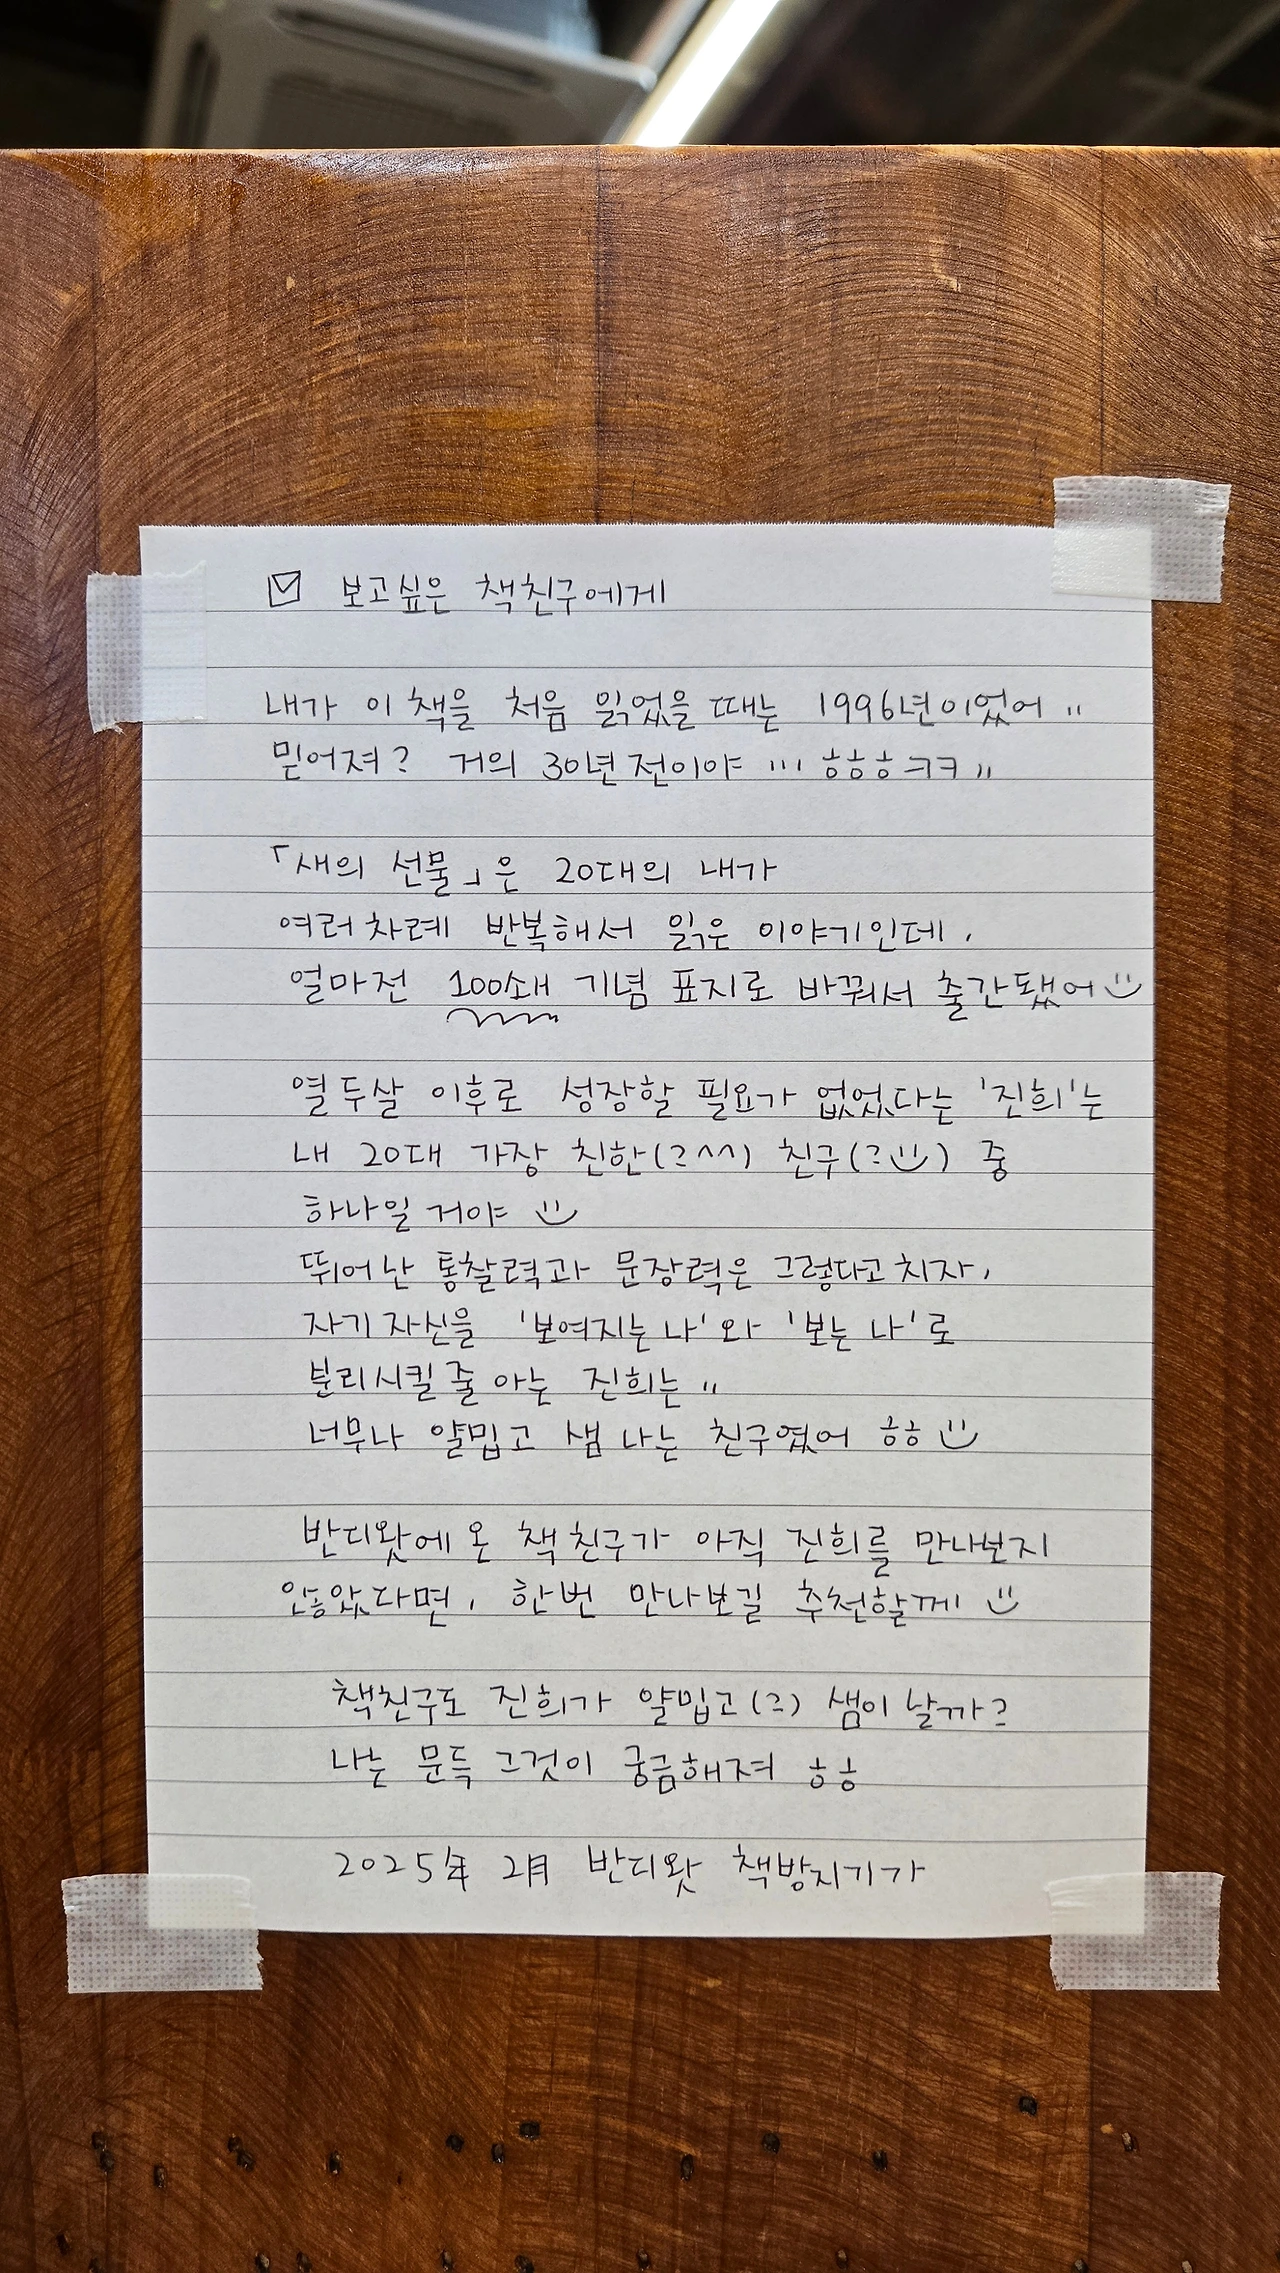 ☑ 보고싶은 책친구에게
내가 이 책을 처음 읽었을 때는 1996년이었어 ..
믿어져? 거의 30년 전이야 ... ㅎㅎㅎㅋㅋ ..
「새의 선물」은 20대의 내가
여러차례 반복해서 읽은 이야기인데,
얼마전 100쇄 기념 표지로 바꿔서 출간됐어 :)
열두살 이후로 성장할 필요가 없었다는 '진희'는
내 20대 가장 친한(?^^) 친구(? :)) 중
하나일 거야 :)
뛰어난 통찰력과 문장력은 그렇다고 치자,
자기 자신을 '보여지는 나'와 '보는 나'로
분리시킬 줄 아는 진희는 ..
너무나 얄밉고 샘 나는 친구였어 ㅎㅎ :)
반디왓에 온 책친구가 아직 진희를 만나보지
않았다면, 한번 만나보길 추천할께 :)
책친구도 진희가 얄밉고(?) 샘이 날까?
나는 문득 그것이 궁금해져 ㅎㅎ
2025年 2月 반디왓 책방지기가